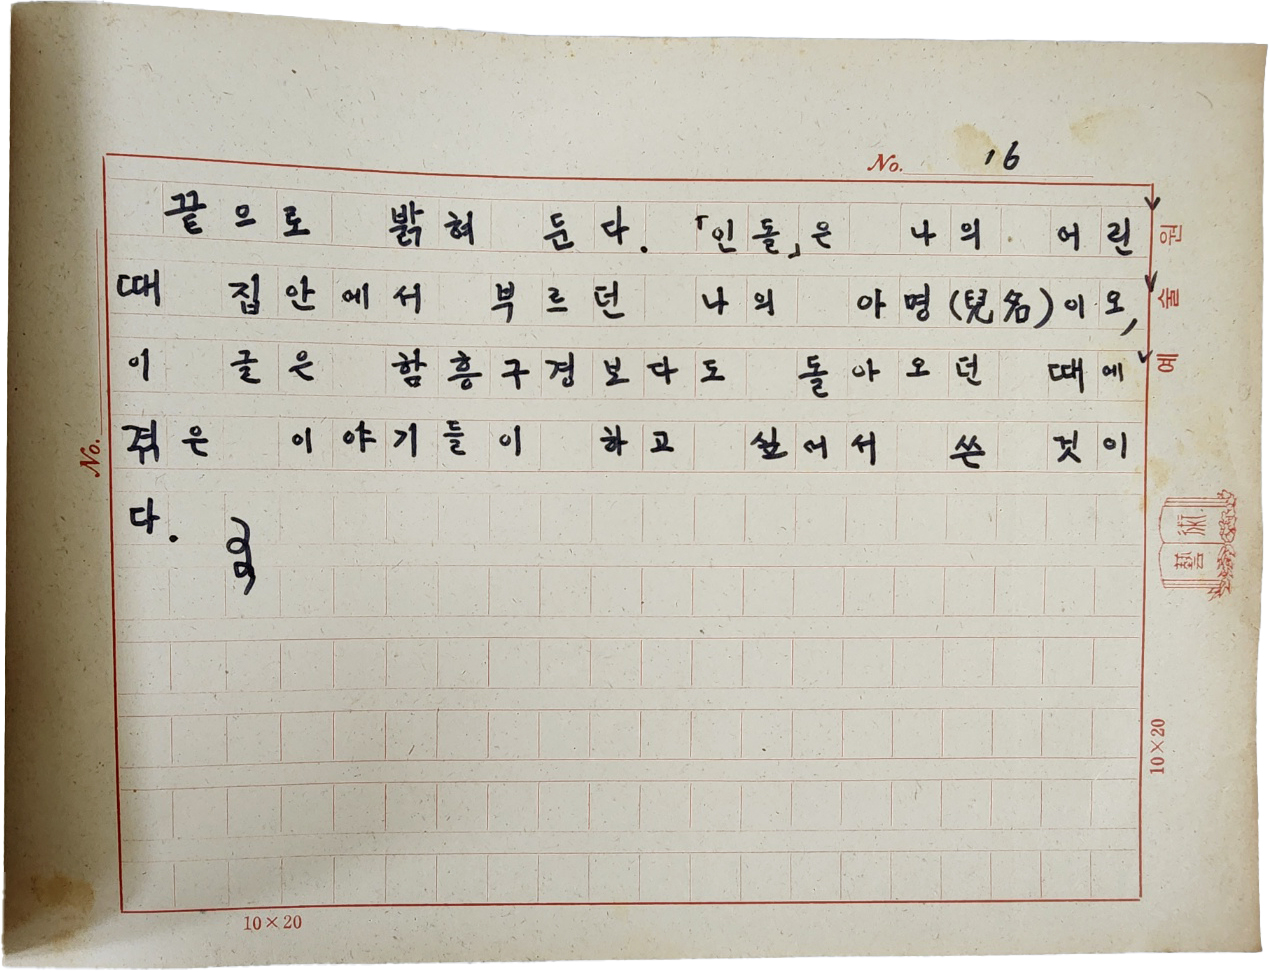 No. 16
끝으로 밝혀 둔다. 「인돌」은 나의 어린
때 집안에서 부르던 나의 아명(兒名)이오,
이 글은 함흥구경보다도 돌아오던 때에
쥐은 이야기들이 하고 싶어서 쓴 것이
다.
No.
예술원
藝術
10×20
10×20